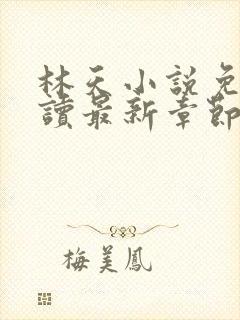 林天小說免
讀最新章節
梅美鳳